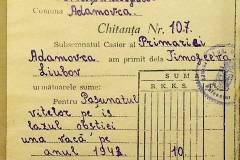 Comuna Adamovca
Chitanța Nr. 107.
Subsemnatul Casier al Primariei
Adamovca am primit dela Timofeevа
Liubov
următoarele sume:
SUMA
R.K.K.S.
Pentru Pașunatul
vitelor pe is
lazul obștiei
una vacă pe
anul 1942
10